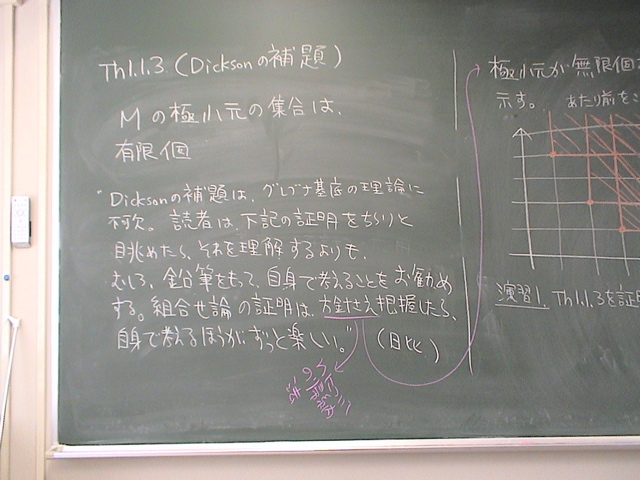 Th1.1.3 (Dicksonの補題)
Mの極小元の集合は、
有限個
"Dicksonの補題は、グレブナ基底の理論に
不可欠。読者は、下記の証明をちらりと
眺めたら、それを理解するよりも、
むしろ、鉛筆をもって、自身で考えることをお勧め
する。組合せ論の証明は、方針さえ把握したら、
自身で考えるほうが、ずっと楽しい。" (日比)
極小元が無限個
示す。 あたり前を
演習1. Th1.1.3を証